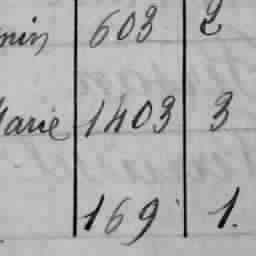 603 2
Marie 1403 3
169 1.